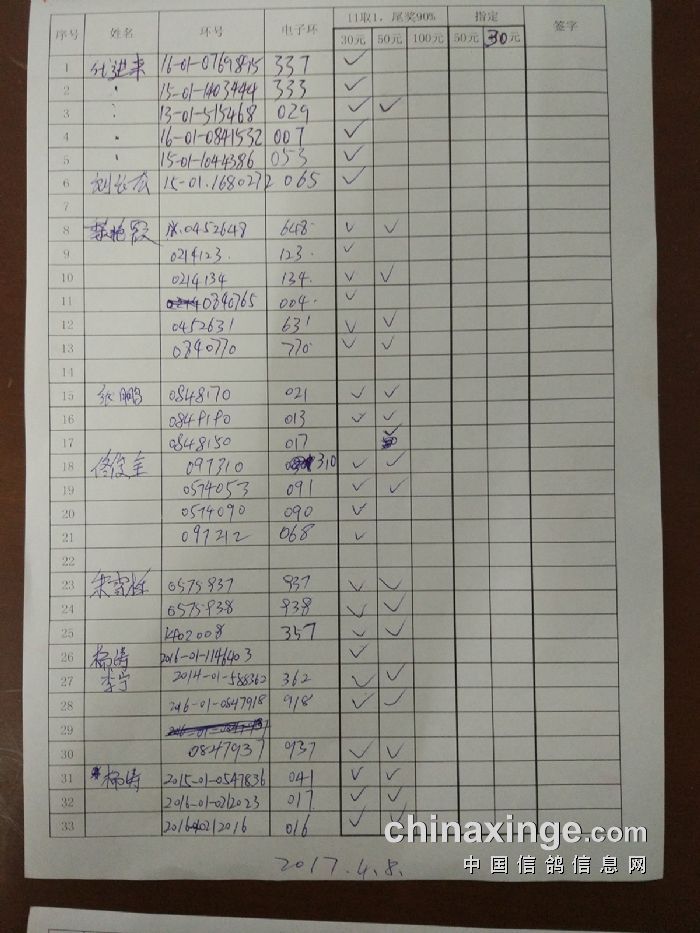 序号 姓名 环号 电子环 11取1，尾奖90% 指定 签字
30元 50元 100元 50元 30元
1 16-01-0769815 337 ✓
2 15-01-1403444 333 ✓
3 13-01-515468 029 ✓ ✓
4 16-01-0841532 007 ✓
5 15-01-1044386 053 ✓
6 15-01.1680272 065 ✓
7
8 .0452648 648. ✓ ✓
9 0214123. 123. ✓
10 0214134 134. ✓ ✓
11 0340765 004. ✓
12 0452631 631 ✓ ✓
13 0340770 770 ✓ ✓
14
15 张鹏 0848170 021 ✓ ✓
16 0848190 013 ✓ ✓
17 0848150 017 ✓
18 佟俊全 097310 310 ✓ ✓
19 0574053 091 ✓ ✓
20 0574090 090 ✓
21 097212 068 ✓
22
23 0575937 937 ✓ ✓
24 0575938 938 ✓ ✓
25 1402008 357 ✓ ✓
26 杨涛 2016-01-1146403 ✓
27 李宁 2014-01-588362 362 ✓ ✓
28 2016-01-0847918 918 ✓ ✓
29
30 0847937 937 ✓ ✓
31 杨涛 2015-01-0547836 041 ✓ ✓
32 2016-01-0212023 017 ✓ ✓
33 0212016 016 ✓ ✓
chinaxinge.com
中国信鸽信息网
2017.4.8.